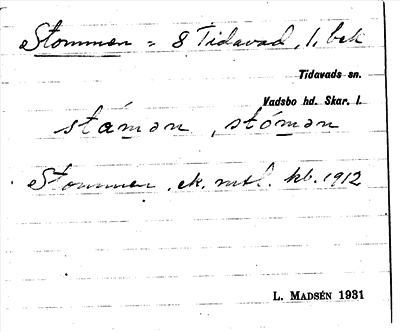 Stommen = 8 Tidavad, 1. bek
Tidavads sn.
Vadsbo hd. Skar. l.
stámən, stómən
Stommen. ek. mtl. kb. 1912
L. MADSÉN 1931